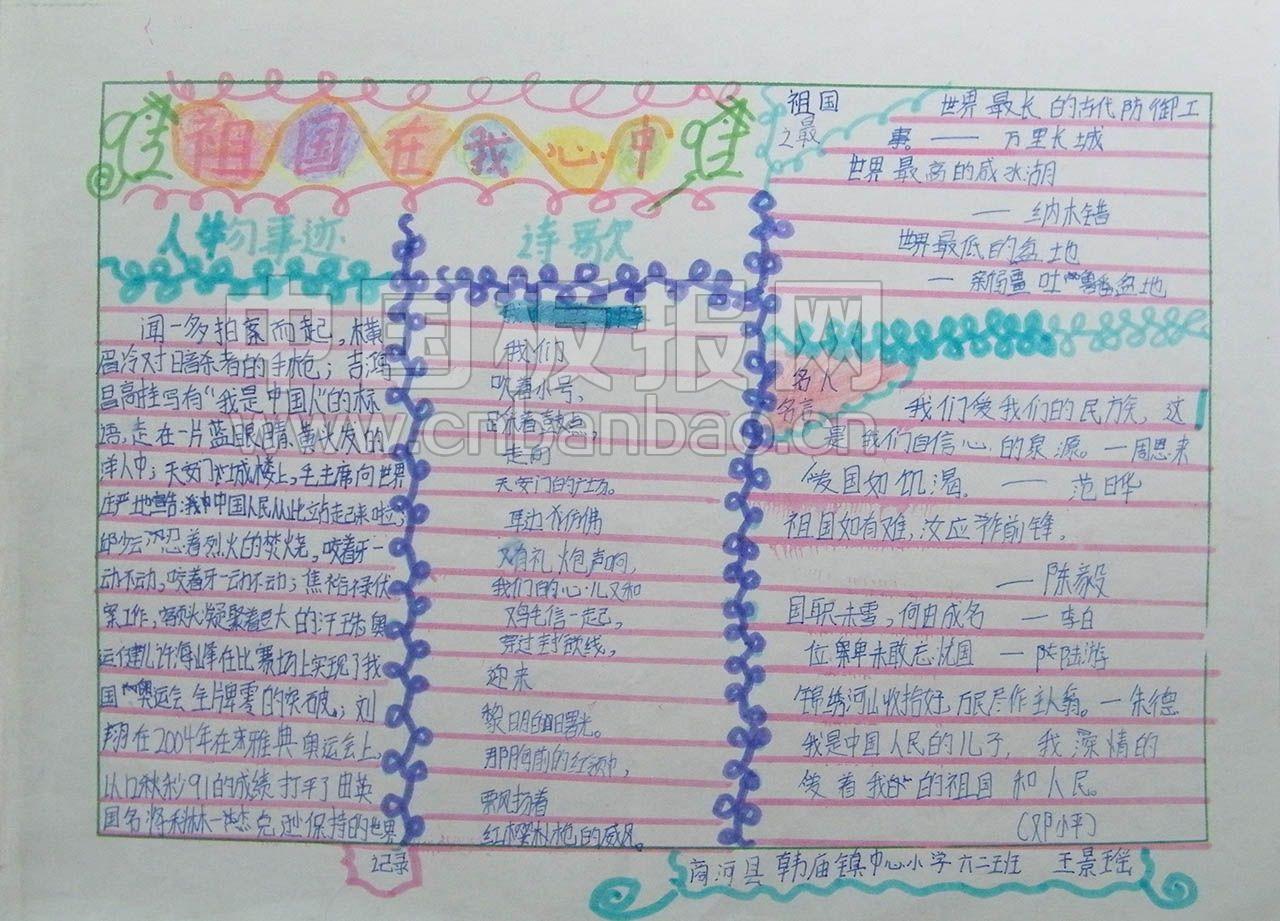 祖国在我心中
人物事迹
闻一多拍案而起,横
眉冷对暗杀者的手枪;吉鸿
昌高挂写有"我是中国人"的标
语,走在一片蓝眼睛、黄头发的
洋人中;天安门城楼上,毛主席向世界
庄严地宣告:我中国人民从此站起来啦;
邱少云忍着烈火的焚烧,咬着牙一
动不动,咬着牙一动不动;焦裕禄伏
案工作,额头凝聚着巨大的汗珠;奥
运健儿许海峰在比赛场上实现了我
国奥运会金牌零的突破;刘
翔在2004年在雅典奥运会上,
以12秒91的成绩打平了由英
国名将科林·杰克逊保持的世界
记录
诗歌
我们
吹着小号,
踏着鼓点,
走向
天安门的广场。
耳边仿佛
又有礼炮声响,
我们的心儿又和
鸡毛信一起,
穿过封锁线,
迎来
黎明的曙光。
那胸前的红领巾,
飘扬着
红樱枪的威风。
祖国
之最
世界最长的古代防御工
事 — 万里长城
世界最高的咸水湖
— 纳木错
世界最低的盆地
— 新疆吐鲁番盆地
名人
名言
我们爱我们的民族,这
是我们自信心的泉源。—周恩来
爱国如饥渴。— 范晔
祖国如有难,汝应作前锋。
— 陈毅
国耻未雪,何由成名 — 李白
位卑未敢忘忧国 — 陆游
锦绣河山收拾好,万民尽作主人翁。—朱德
我是中国人民的儿子,我深情的
爱着我的祖国和人民。
(邓小平)
商河县韩庙镇中心小学六二班 王景瑶
中国板报网
www.cnbanbao.cn